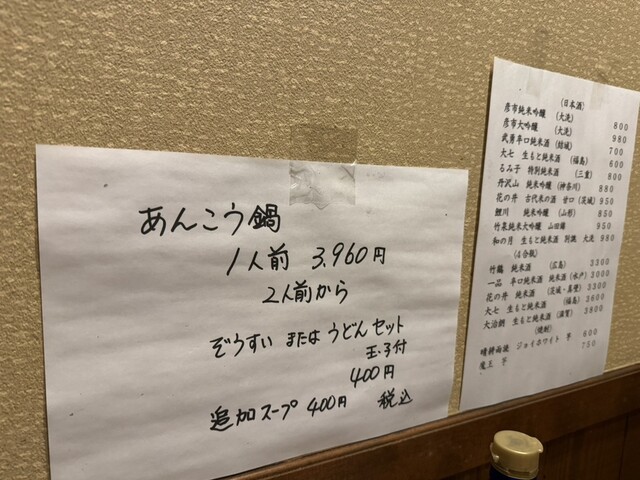 あんこう鍋
1人前 3.960円
2人前から
ぞうすい または うどん セット
玉子付
400円
追加スープ 400円 税込
(日本酒)
彦市純米吟醸 (大洗) 800
彦市大吟醸 (大洗) 980
武勇辛口純米酒 (結城) 700
大七 生もと純米酒 (福島) 600
るみ子 特別純米酒 (三重) 800
丹沢山 純米吟醸 (神奈川) 880
花の井 古代米の酒 甘口 (茨城) 950
鯉川 純米吟醸 (山形) 850
竹泉純米大吟醸 山田錦 950
和の月 生もと純米酒 別誂 大洗 980
(4合瓶)
竹鶴 純米酒 (広島) 3300
一品 辛口純米酒 純米酒 (水戸) 3000
花の井 純米酒 (茨城・真壁) 3300
大七 生もと純米酒 (福島) 3600
大治郎 生もと純米酒 (滋賀) 3800
(焼酎)
晴耕雨読 ジョイホワイト 芋 600
魔王 芋 750